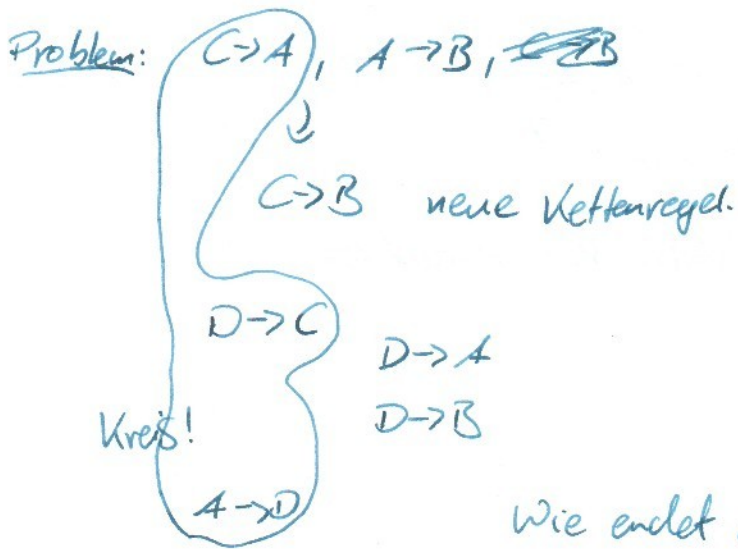 Problem: C→A, A→B, C→B
C→B neue Kettenregel.
D→C
D→A
D→B
Kreis!
A→D
Wie endet